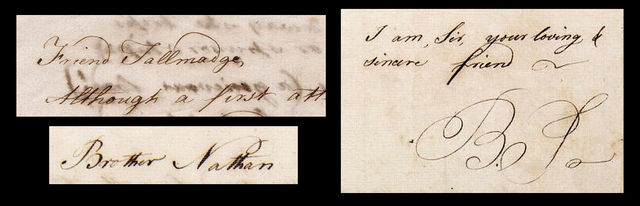 Friend Tallmadge,
Although a first att
Brother Nathan
I am, Sir, your loving &
sincere friend
B. T.